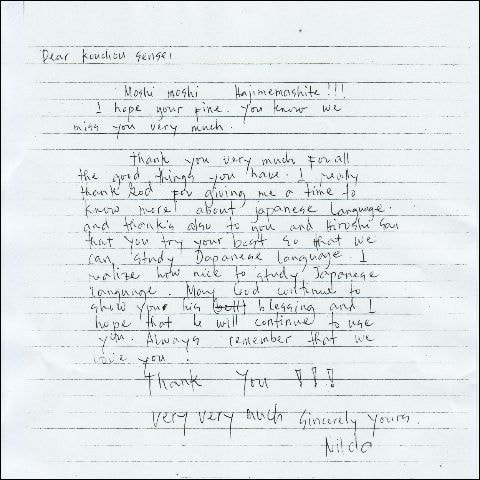 Dear Kouchou sensei
Moshi moshi Hajimemashite !!!
I hope your fine. You know we
miss you very much.
Thank you very much for all
the good things you have. I really
thank God for giving me a time to
know more about japanese language.
and thank's also to you and Hiroshi San
that you try your best so that we
can study Dapanese language. I
realize how nice to study Japanese
language. May God continue to
show your his blessing and I
hope that he will continue to use
you. Always remember that we
love you.
Thank You !!!
very very much Sincerely yours.
Nilda